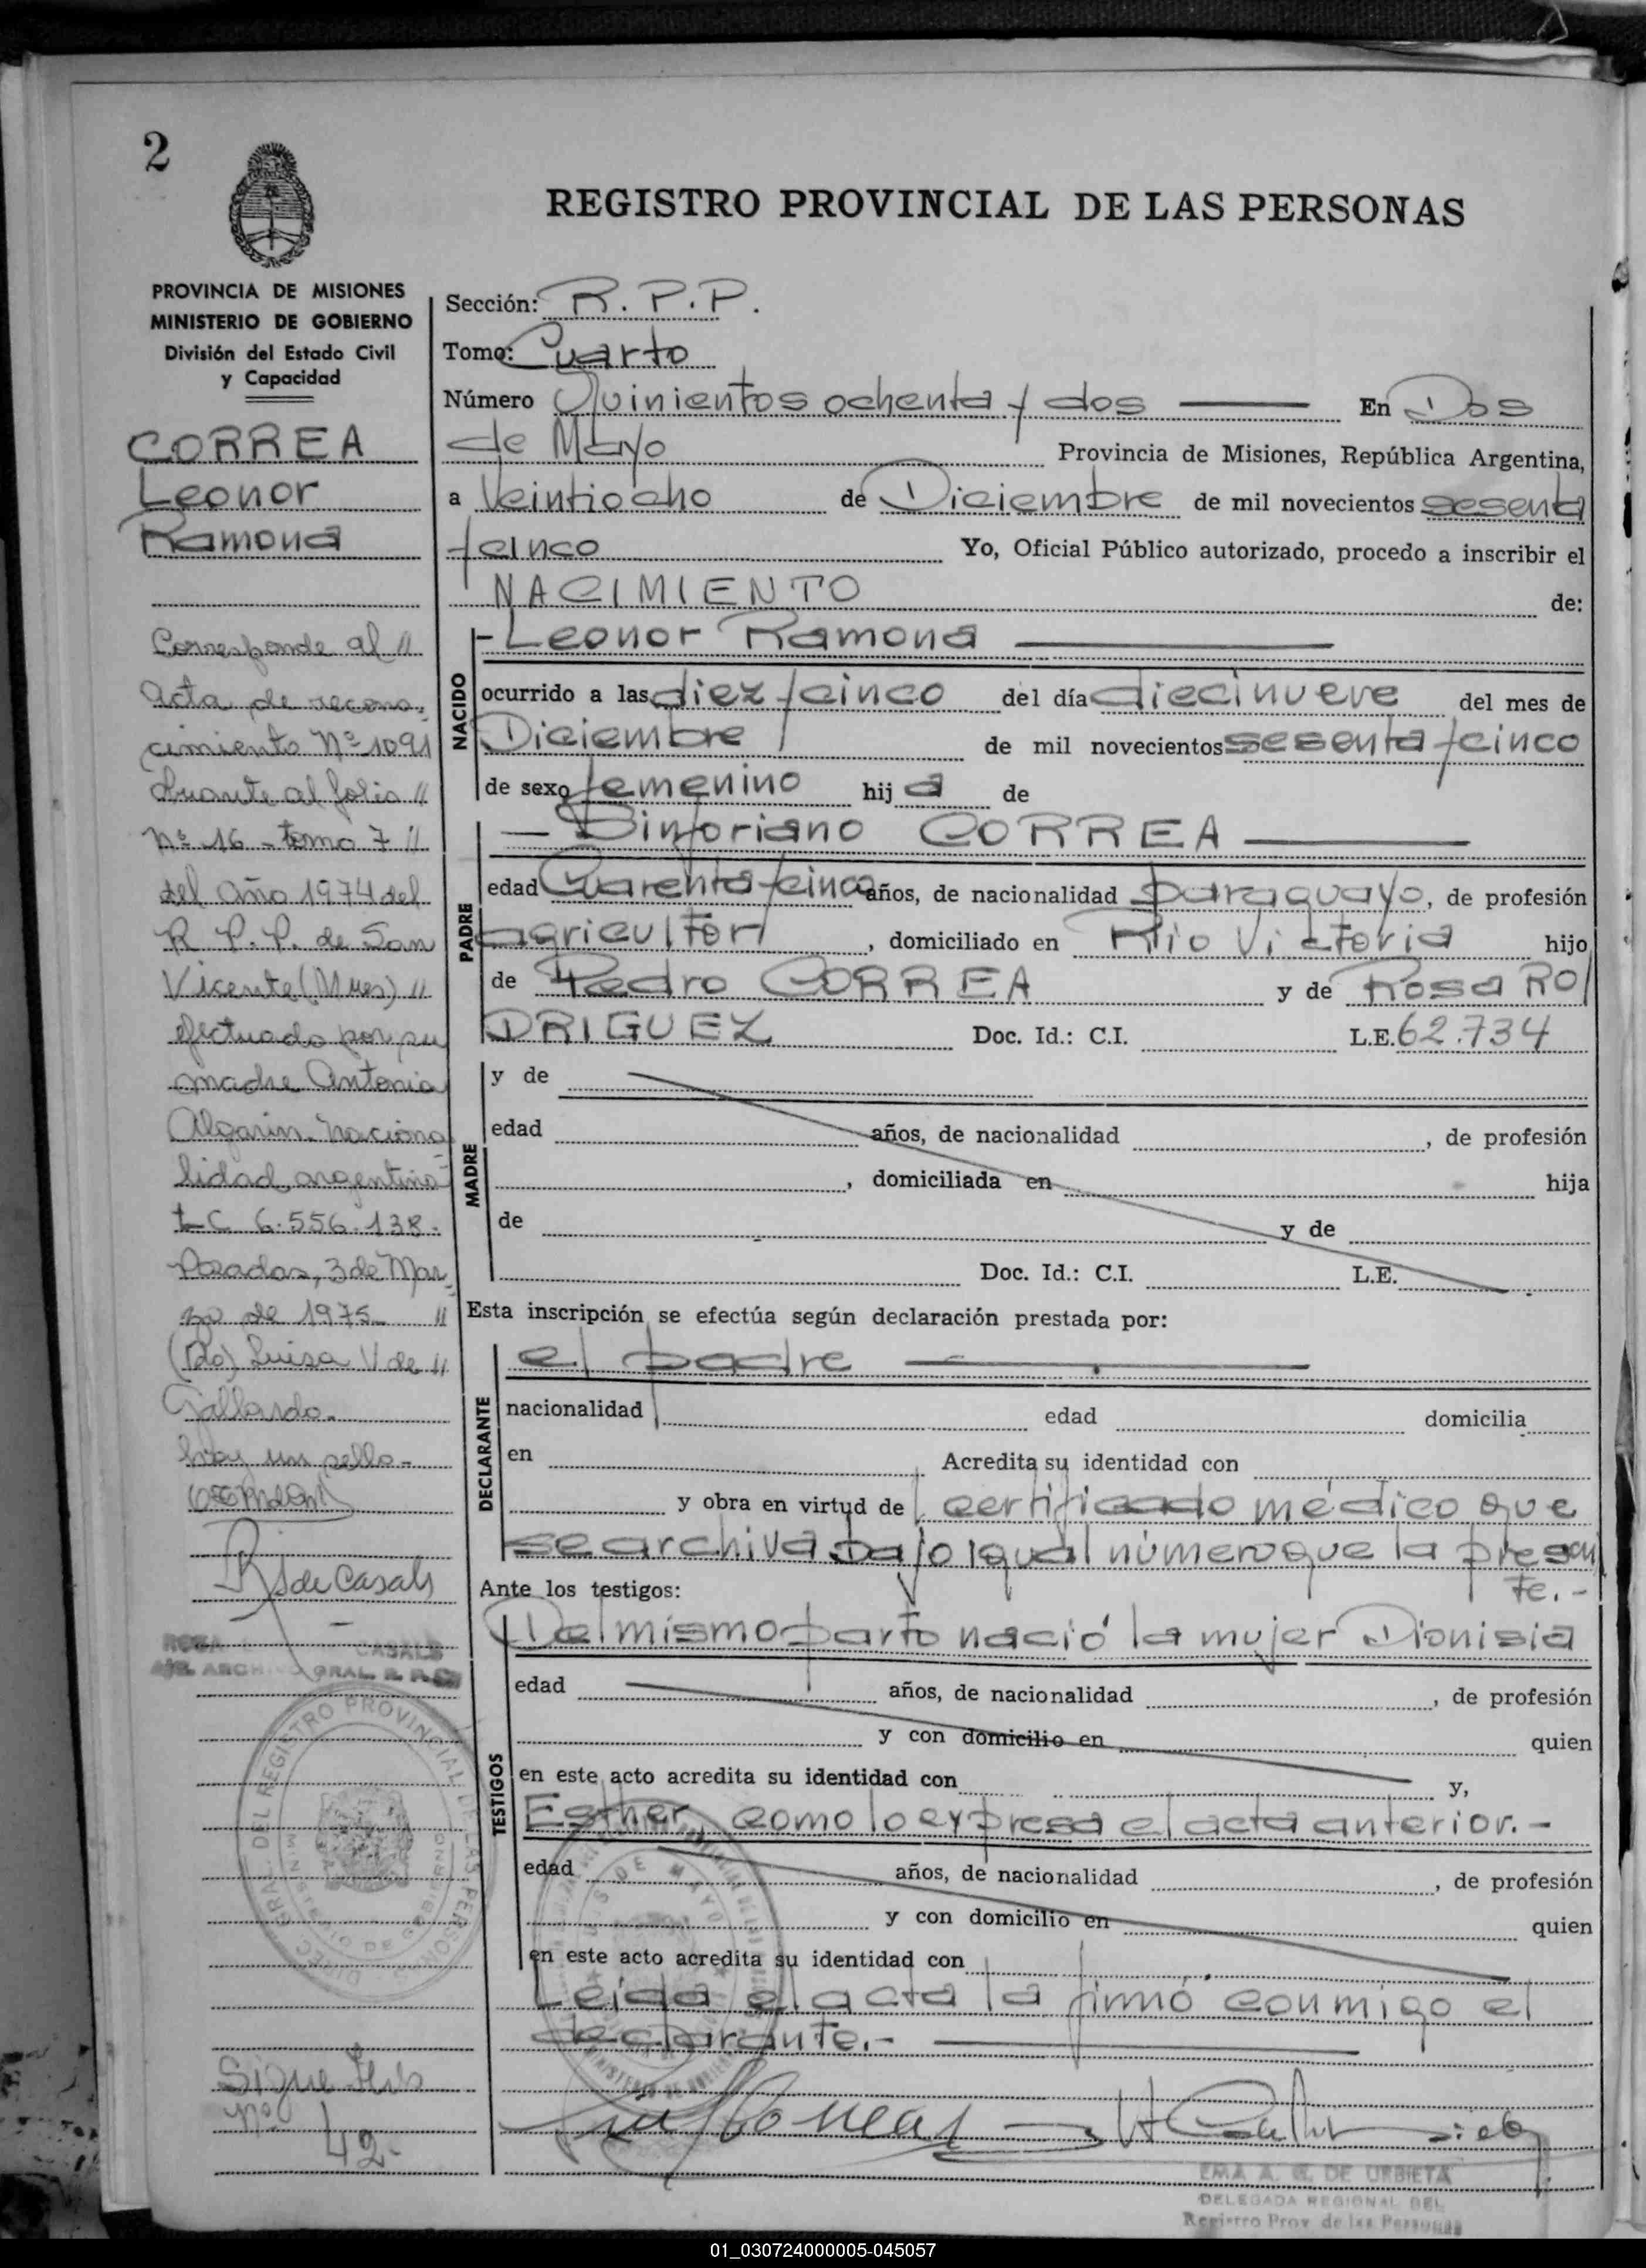 2
REGISTRO PROVINCIAL DE LAS PERSONAS
PROVINCIA DE MISIONES
MINISTERIO DE GOBIERNO
División del Estado Civil
y Capacidad
CORREA
Leonor
Ramona
Corresponde al //
Acta de recono-
cimiento Nº 1091
al folio //
Nº 16 - tomo 7 //
del Año 1974 del
R. P. P. de San
Vicente (Mnes) //
efectuado por su
madre Antonia
Algarin. Naciona
lidad argentina
L C 6.556.138.
Posadas, 3 de Mar-
zo de 1975 //
(Do) Luisa V de //
Gallardo.
hay un sello -
R S de Casals
CASALS
GRAL. R. P.
DIREC. GRAL. DEL REGISTRO PROVINCIAL DE LAS PERSONAS
MINISTERIO DE GOBIERNO
Sigue
Nº
42-
Sección: R. P. P.
Tomo: Cuarto
Número Quinientos ochenta y dos En Dos
de Mayo Provincia de Misiones, República Argentina,
a Veintiocho de Diciembre de mil novecientos sesenta
y cinco Yo, Oficial Público autorizado, procedo a inscribir el
NACIMIENTO de:
NACIDO
- Leonor Ramona
ocurrido a las diez y cinco del día diecinueve del mes de
Diciembre de mil novecientos sesenta y cinco
de sexo femenino hij a de
PADRE
- Sinforiano CORREA
edad Cuarenta y cinco años, de nacionalidad paraguayo, de profesión
agricultor, domiciliado en Río Victoria hijo
de Pedro CORREA y de Rosa RO/
DRIGUEZ Doc. Id.: C.I. L.E. 62.734
MADRE
y de
edad años, de nacionalidad , de profesión
, domiciliada en hija
de y de
Doc. Id.: C.I. L.E.
Esta inscripción se efectúa según declaración prestada por:
DECLARANTE
el padre
nacionalidad edad domicilia
en Acredita su identidad con
y obra en virtud de certificado médico que
se archiva bajo igual número que la presen
te.-
Ante los testigos:
TESTIGOS
Del mismo parto nació la mujer Dionisia
edad años, de nacionalidad , de profesión
y con domicilio en quien
en este acto acredita su identidad con y,
Esther, como lo expresa el acta anterior.-
edad años, de nacionalidad , de profesión
y con domicilio en quien
en este acto acredita su identidad con
Leída el acta la firmó conmigo el
declarante.-
DOS DE MAYO
EMA A. G. DE URBIETA
DELEGADA REGIONAL DEL
Registro Prov. de las Personas
01_030724000005-045057